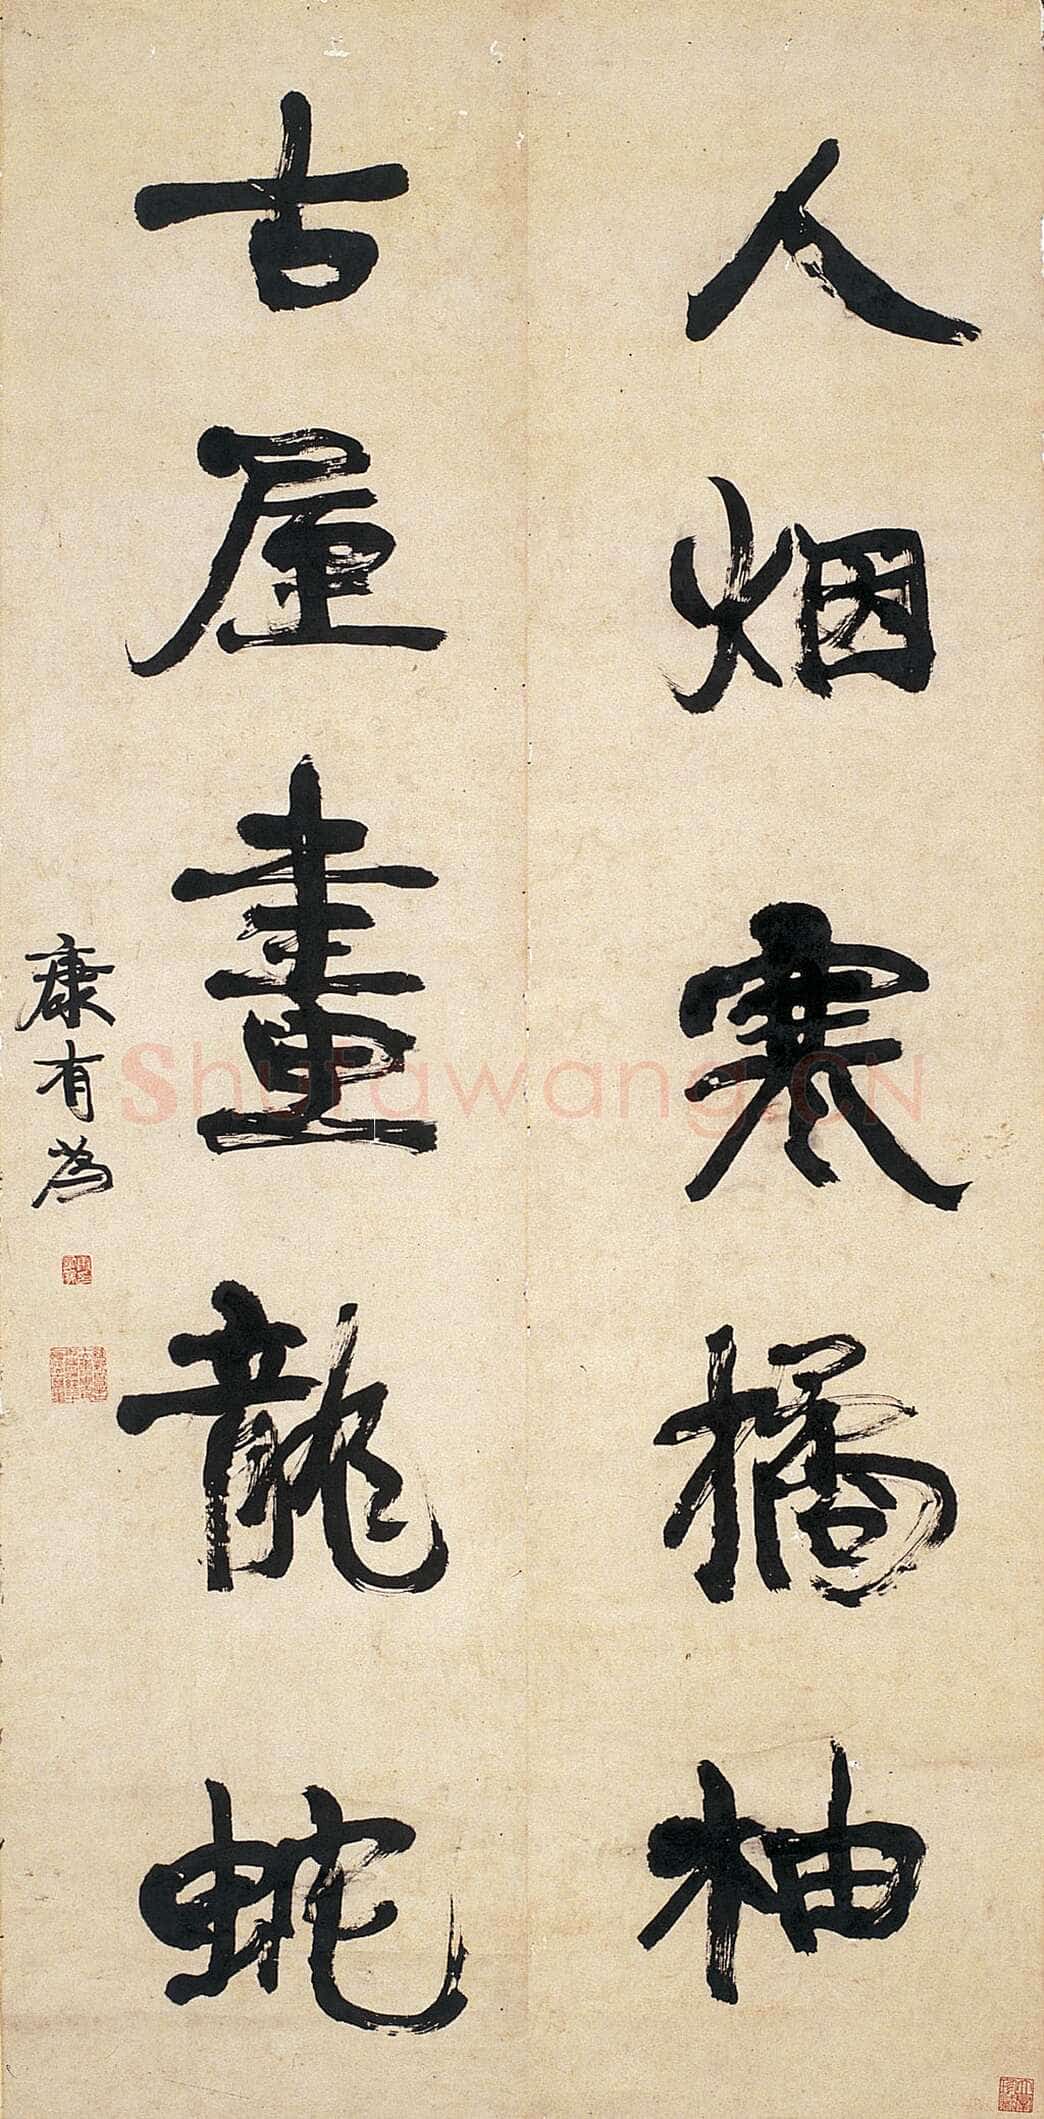 人烟寒橘柚
古屋畫龍蛇
康有為
Shufawang.CN